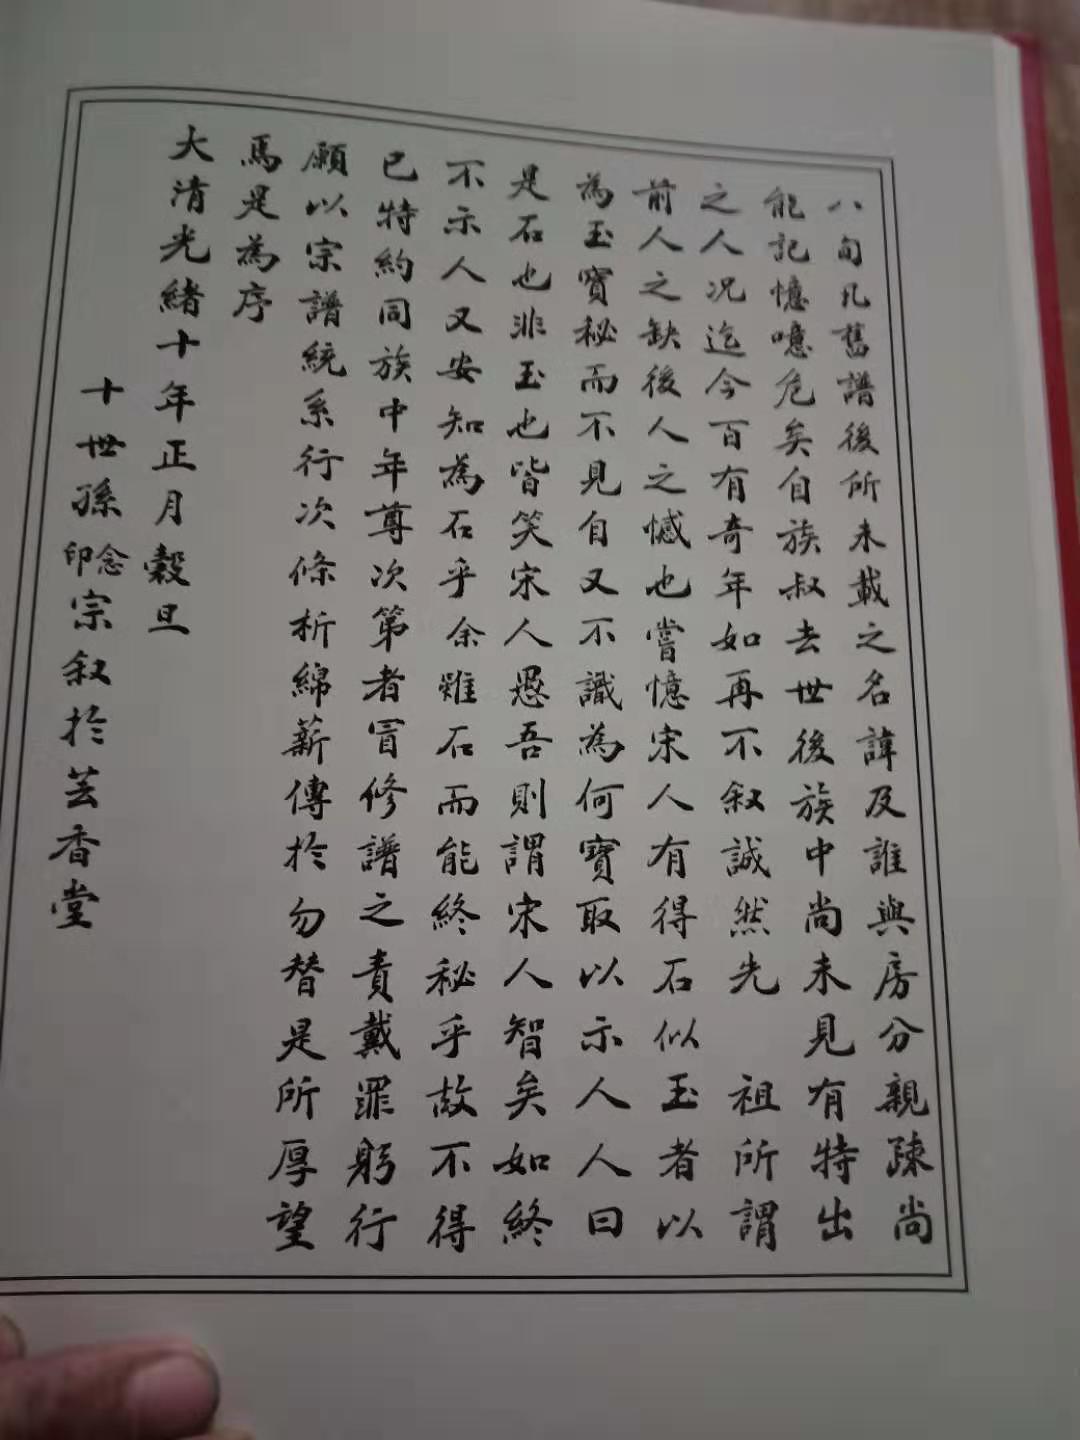 八旬凡舊譜後所未載之名諱及誰與房分親疎尚
能記憶噫危矣自族叔去世後族中尚未見有特出
之人况迄今百有奇年如再不叙誠然先 祖所謂
前人之缺後人之憾也嘗憶宋人有得石似玉者以
為玉寶秘而不見自又不識為何寶取以示人人曰
是石也非玉也皆笑宋人愚吾則謂宋人智矣如終
不示人又安知為石乎余雖石而能終秘乎故不得
已特約同族中年尊次第者冒修譜之責戴罪躬行
願以宗譜統系行次條析綿薪傳於勿替是所厚望
焉是為序
大清光緒十年正月穀旦
十世孫念印宗叙於芸香堂